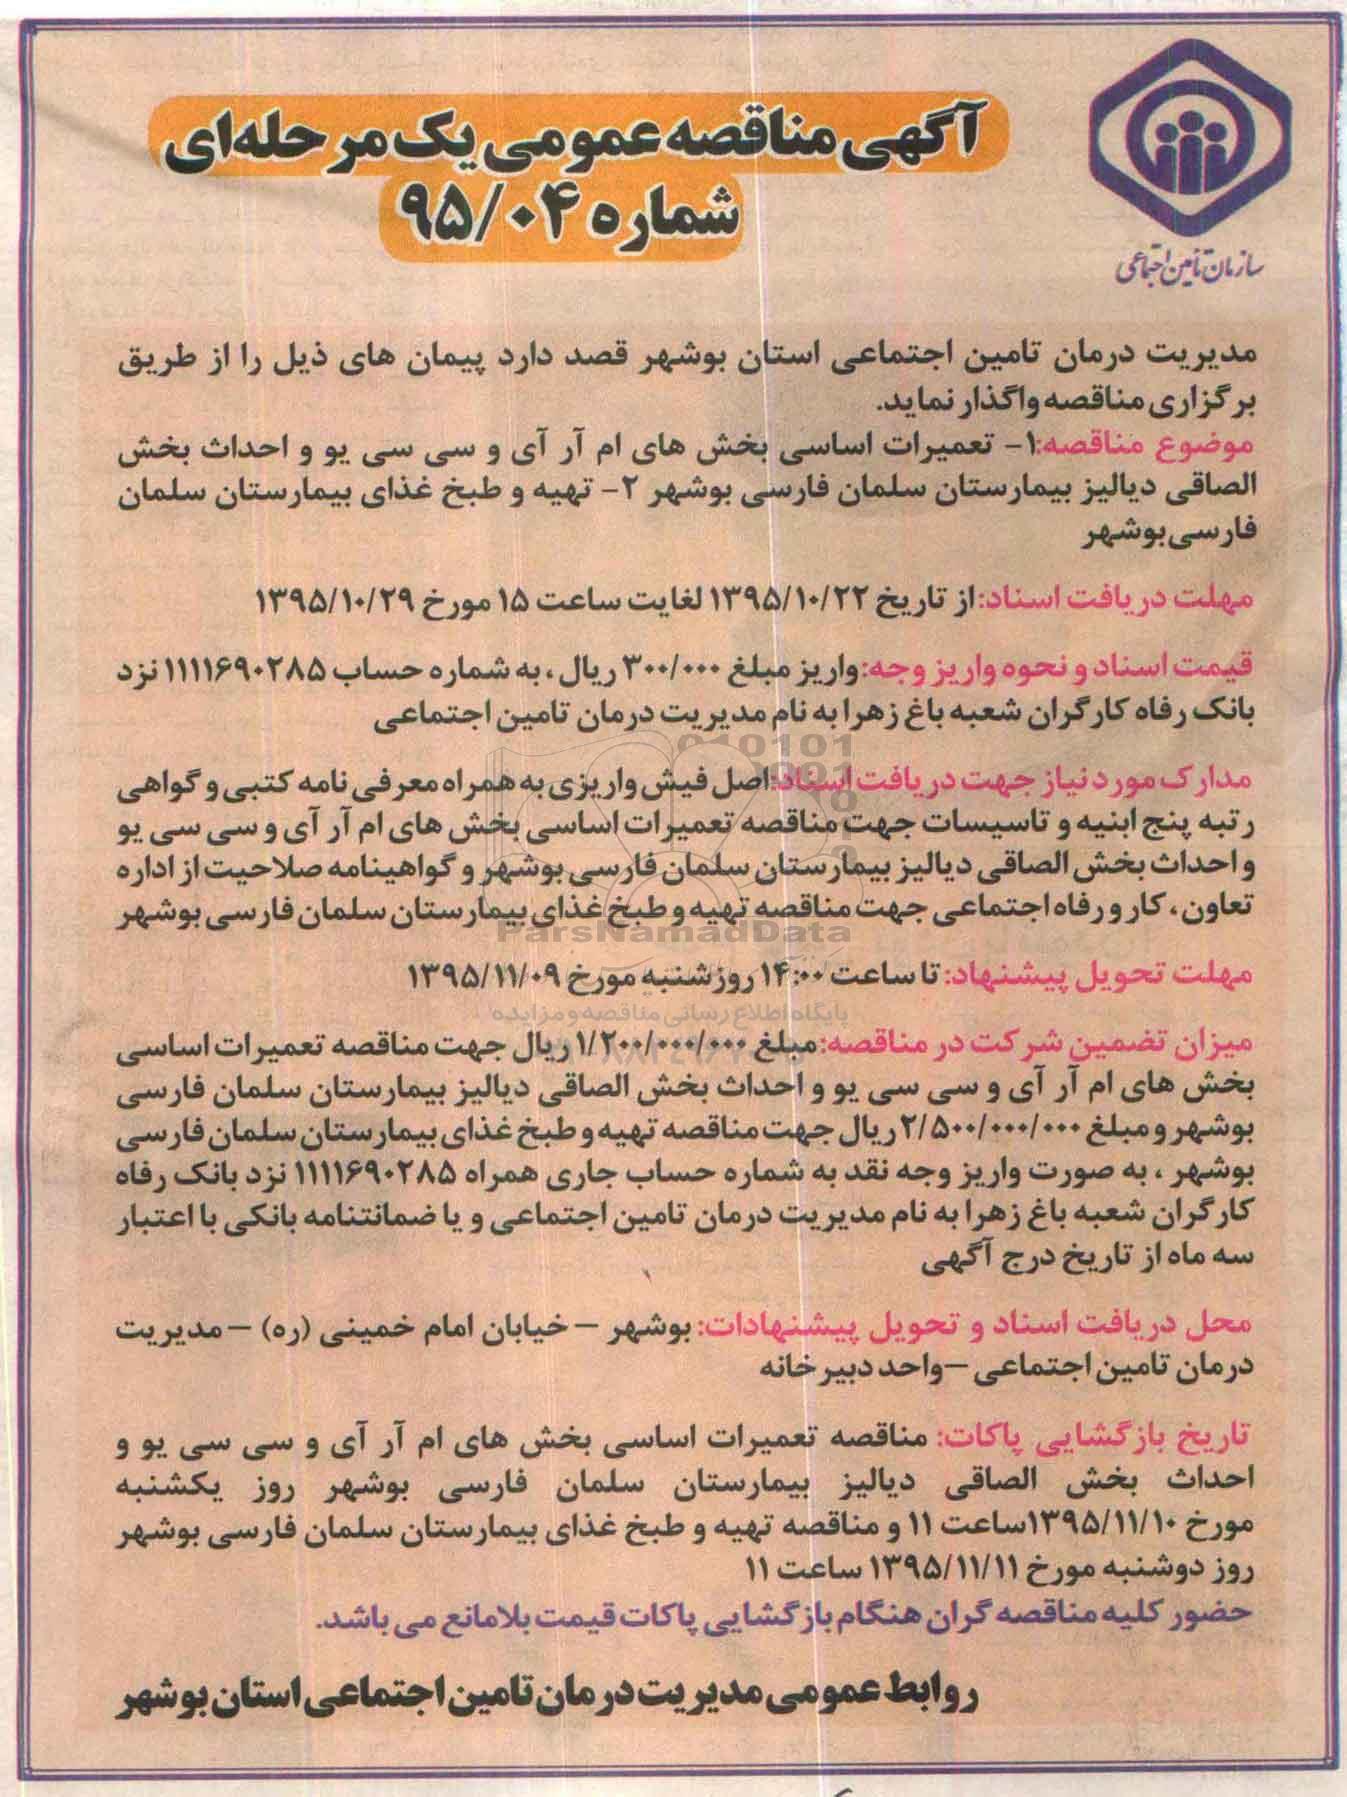 آگهی مناقصه عمومی یک مرحله‌ای
شماره ۹۵/۰۴
سازمان تأمین اجتماعی
مدیریت درمان تامین اجتماعی استان بوشهر قصد دارد پیمان های ذیل را از طریق
برگزاری مناقصه واگذار نماید.
موضوع مناقصه:۱- تعمیرات اساسی بخش های ام آر آی و سی سی یو و احداث بخش
الصاقی دیالیز بیمارستان سلمان فارسی بوشهر ۲- تهیه و طبخ غذای بیمارستان سلمان
فارسی بوشهر
مهلت دریافت اسناد:از تاریخ ۱۳۹۵/۱۰/۲۲ لغایت ساعت ۱۵ مورخ ۱۳۹۵/۱۰/۲۹
قیمت اسناد و نحوه واریز وجه:واریز مبلغ ۳۰۰/۰۰۰ ریال ، به شماره حساب ۱۱۱۱۶۹۰۲۸۵ نزد
بانک رفاه کارگران شعبه باغ زهرا به نام مدیریت درمان تامین اجتماعی
مدارک مورد نیاز جهت دریافت اسناد:اصل فیش واریزی به همراه معرفی نامه کتبی و گواهی
رتبه پنج ابنیه و تاسیسات جهت مناقصه تعمیرات اساسی بخش های ام آر آی و سی سی یو
و احداث بخش الصاقی دیالیز بیمارستان سلمان فارسی بوشهر و گواهینامه صلاحیت از اداره
تعاون ، کار و رفاه اجتماعی جهت مناقصه تهیه و طبخ غذای بیمارستان سلمان فارسی بوشهر
ParsNamadData
مهلت تحویل پیشنهاد: تا ساعت ۱۴:۰۰ روز شنبه مورخ ۱۳۹۵/۱۱/۰۹
پایگاه اطلاع رسانی مناقصه و مزایده
میزان تضمین شرکت در مناقصه:مبلغ ۱/۲۰۰/۰۰۰/۰۰۰ ریال جهت مناقصه تعمیرات اساسی
بخش های ام آر آی و سی سی یو و احداث بخش الصاقی دیالیز بیمارستان سلمان فارسی
بوشهر و مبلغ ۲/۵۰۰/۰۰۰/۰۰۰ ریال جهت مناقصه تهیه و طبخ غذای بیمارستان سلمان فارسی
بوشهر ، به صورت واریز وجه نقد به شماره حساب جاری همراه ۱۱۱۱۶۹۰۲۸۵ نزد بانک رفاه
کارگران شعبه باغ زهرا به نام مدیریت درمان تامین اجتماعی و یا ضمانتنامه بانکی با اعتبار
سه ماه از تاریخ درج آگهی
محل دریافت اسناد و تحویل پیشنهادات: بوشهر – خیابان امام خمینی (ره) – مدیریت
درمان تامین اجتماعی –واحد دبیرخانه
تاریخ بازگشایی پاکات: مناقصه تعمیرات اساسی بخش های ام آر آی و سی سی یو و
احداث بخش الصاقی دیالیز بیمارستان سلمان فارسی بوشهر روز یکشنبه
مورخ ۱۳۹۵/۱۱/۱۰ساعت ۱۱ و مناقصه تهیه و طبخ غذای بیمارستان سلمان فارسی بوشهر
روز دوشنبه مورخ ۱۳۹۵/۱۱/۱۱ ساعت ۱۱
حضور کلیه مناقصه گران هنگام بازگشایی پاکات قیمت بلامانع می باشد.
روابط عمومی مدیریت درمان تامین اجتماعی استان بوشهر